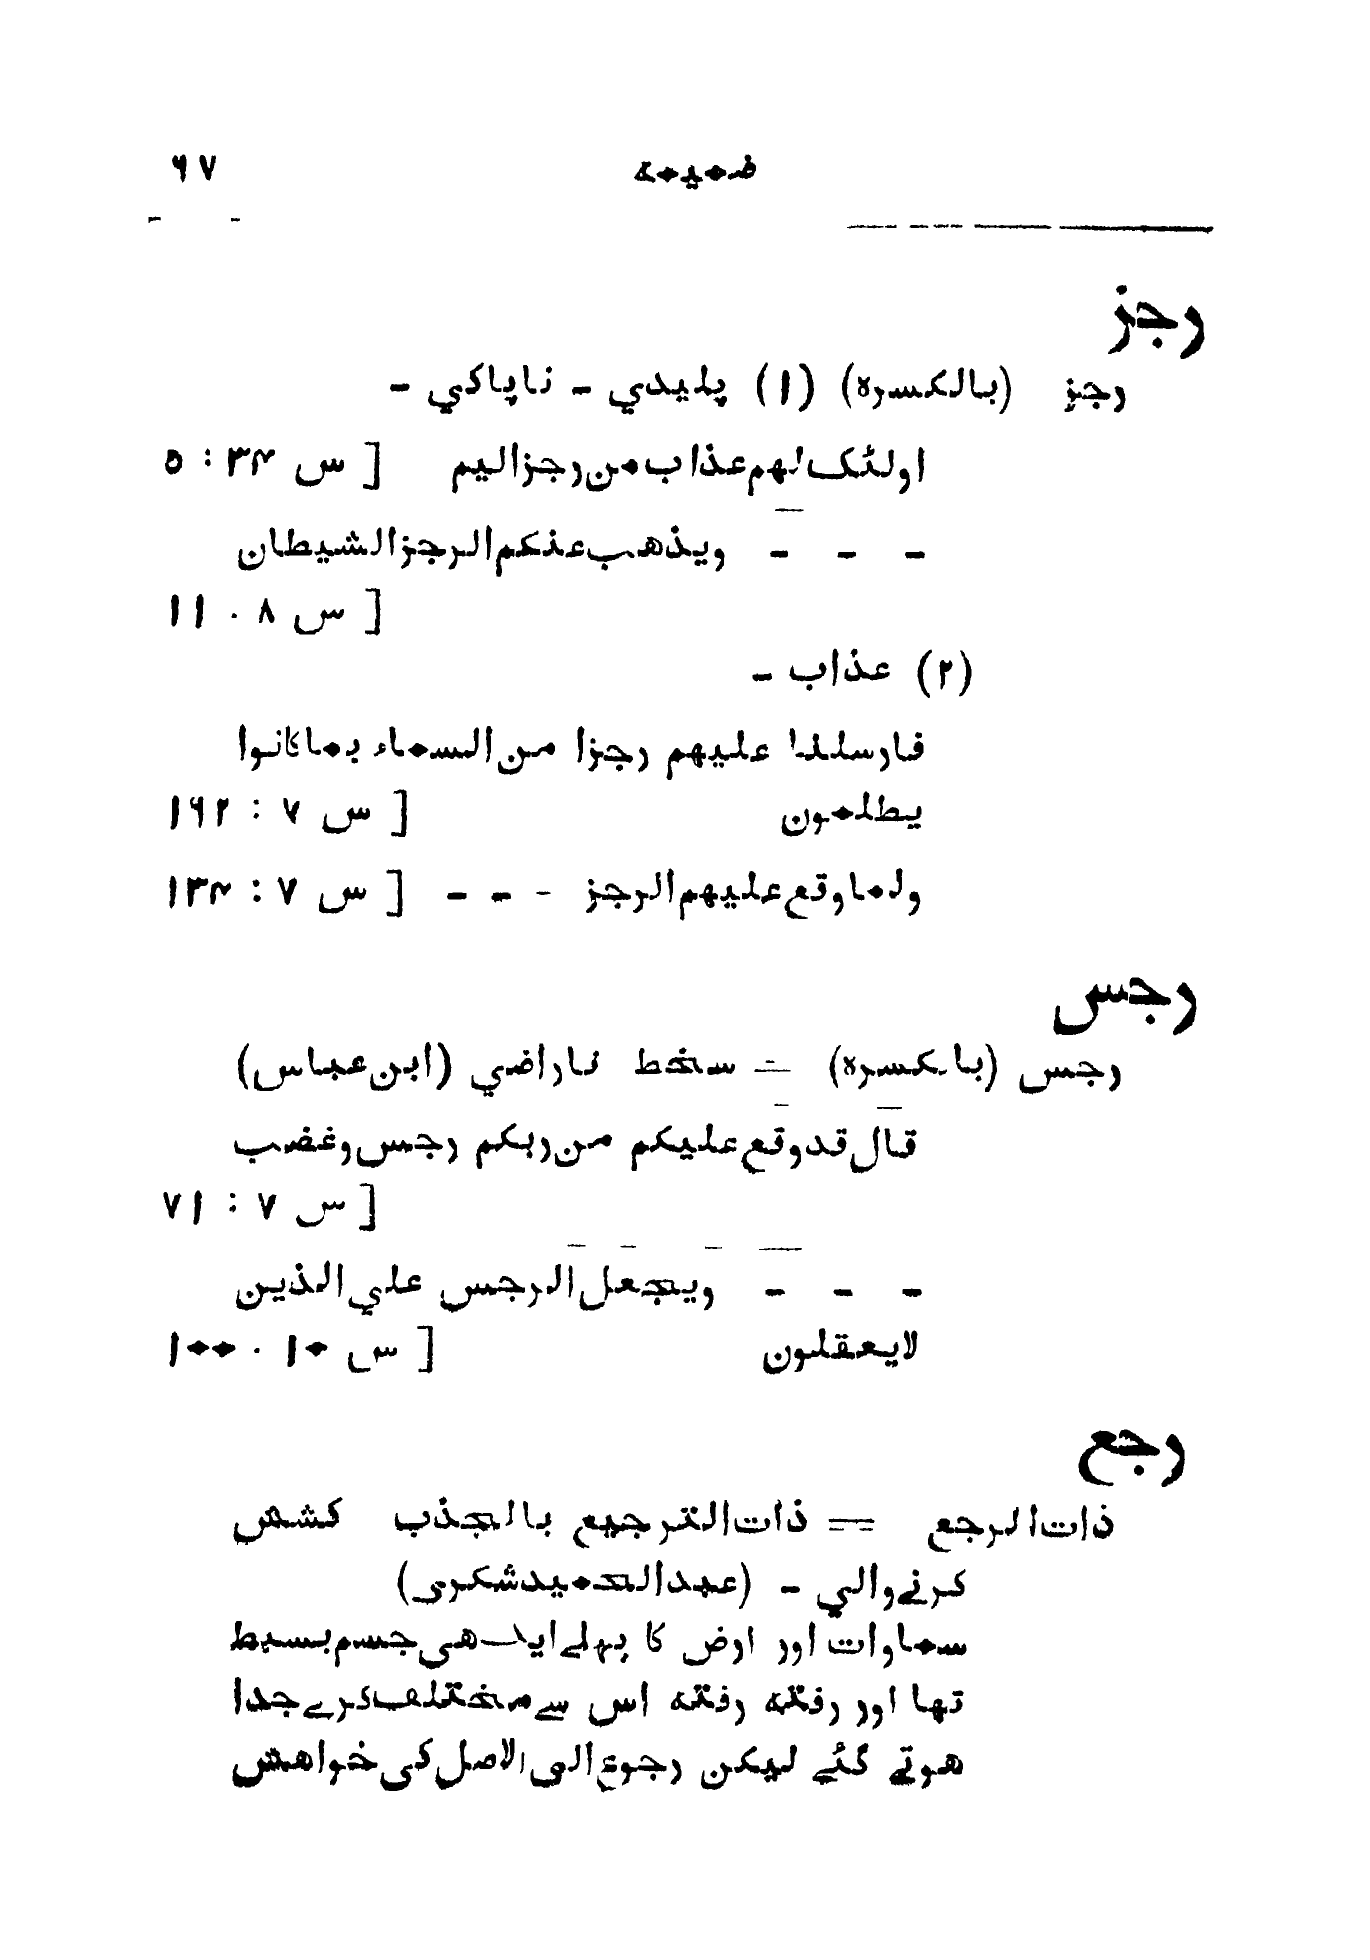 ضمیمہ ۶۷
رجز
رجز (بالکسرہ) (۱) پلیدي - ناپاکي -
اولئک لہم عذاب من رجز الیم [ س ۳۴ : ۵
- - - ویذهب عنکم الرجز الشیطان
[ س ۸ . ۱۱
(۲) عذاب -
فارسلنا علیہم رجزا من السماء بما کانوا
یظلمون [ س ۷ : ۱۶۲
ولما وقع علیہم الرجز - - - [ س ۷ : ۱۳۴
رجس
رجس (بالکسرہ) = سخط ناراضي (ابن عباس)
قال قد وقع علیکم من ربکم رجس و غضب
[ س ۷ : ۷۱
- - - ویجعل الرجس علي الذین
لا یعقلون [ س ۱۰ . ۱۰۰
رجع
ذات الرجع = ذات الترجیع بالجذب کشش
کرنے والي - (عبد الحمید شکری)
سماوات اور ارض کا پہلے ایک هی جسم بسیط
تھا اور رفتہ رفتہ اس سے مختلف کرے جدا
هوتے گئے لیکن رجوع الی الاصل کی خواهش